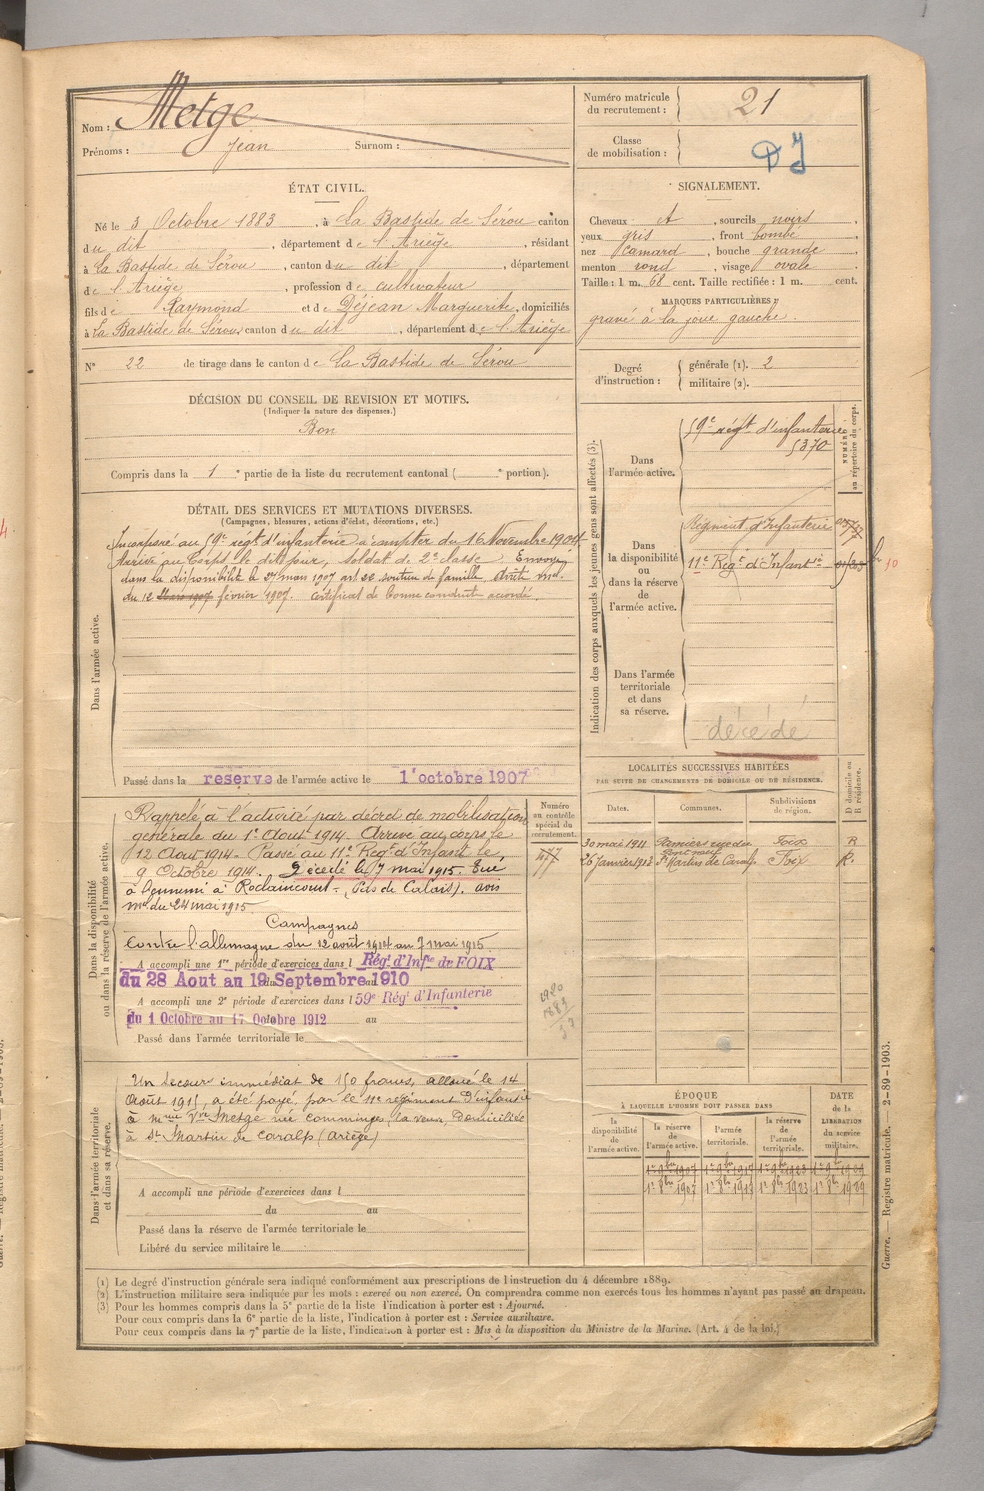 Nom : Metge
Prénoms : Jean Surnom :
Numéro matricule du recrutement : 21
Classe de mobilisation :
ÉTAT CIVIL.
Né le 3 Octobre 1883, à La Bastide de Sérou canton
du dit, département de l'Ariège, résidant
à La Bastide de Sérou, canton du dit, département
de l'Ariège, profession de cultivateur
fils de Raymond et de Déjean Marguerite, domiciliés
à La Bastide de Sérou, canton du dit, département de l'Ariège
N° 22 de tirage dans le canton de La Bastide de Sérou
SIGNALEMENT.
Cheveux et, sourcils noirs,
yeux gris, front bombé,
nez camard, bouche grande
menton rond, visage ovale
Taille : 1 m. 68 cent. Taille rectifiée : 1 m. cent.
MARQUES PARTICULIÈRES
gravé à la joue gauche.
Degré d'instruction : générale (1). 2
militaire (2).
DÉCISION DU CONSEIL DE REVISION ET MOTIFS.
(Indiquer la nature des dispenses.)
Bon
Compris dans la 1e partie de la liste du recrutement cantonal ( e portion).
DÉTAIL DES SERVICES ET MUTATIONS DIVERSES.
(Campagnes, blessures, actions d'éclat, décorations, etc.)
Dans l'armée active.
Incorporé au 59e régt d'infanterie à compter du 16 Novembre 1904
Arrivé au Corps le dit jour, soldat de 2e classe. Envoyé
dans la disponibilité le 27 mars 1907 art 22 soutien de famille. Arrêté mel
du 12 Mars 1907 février 1907. Certificat de bonne conduite accordé.
Passé dans la réserve de l'armée active le 1 octobre 1907
Indication des corps auxquels les jeunes gens sont affectés (3).
NUMÉRO au répertoire du corps.
Dans l'armée active.
59e régt d'infanterie
5370
Dans la disponibilité ou dans la réserve de l'armée active.
Régiment d'Infanterie
11e Régt d'Infantie
Dans l'armée territoriale et dans sa réserve.
décédé
LOCALITÉS SUCCESSIVES HABITÉES
PAR SUITE DE CHANGEMENTS DE DOMICILE OU DE RÉSIDENCE.
Dates. Communes. Subdivisions de région. D domicile ou R résidence.
30 mai 1911 Pamiers Foix R
26 Janvier 1912 St Martin de Caralp Foix R.
Dans la disponibilité ou dans la réserve de l'armée active.
Numéro au contrôle spécial du recrutement.
Rappelé à l'activité par décret de mobilisation
générale du 1er Août 1914. Arrivé au corps le
12 Aout 1914. Passé au 11e Régt d'Infantie le,
9 Octobre 1914. Décédé le 7 mai 1915. Tué
à l'ennemi à Roclaincourt (Pas de Calais). avis
mel du 24 mai 1915.
Campagnes
Contre l'allemagne du 12 août 1914 au 7 mai 1915.
A accompli une 1re période d'exercices dans l Régt d'Infie de FOIX
du 28 Aout au 19 Septembre 1910
A accompli une 2e période d'exercices dans l 59e Régt d'Infanterie
du 1 Octobre au 17 Octobre 1912 au
Passé dans l'armée territoriale le
1920
1883
37
Dans l'armée territoriale et dans sa réserve.
Un secours immédiat de 150 francs, alloué le 14
Août 1915, a été payé, par le 11e régiment d'infantie
à Mme Vve Metge née comminge, la veuve Domiciliée
à St Martin de Caralp (ariège)
A accompli une période d'exercices dans l
du au
Passé dans la réserve de l'armée territoriale le
Libéré du service militaire le
ÉPOQUE
À LAQUELLE L'HOMME DOIT PASSER DANS
DATE de la LIBÉRATION du service militaire.
la disponibilité de l'armée active. la réserve de l'armée active. l'armée territoriale. la réserve de l'armée territoriale.
1er 9bre 1907 1er 9bre 1917 1er 9bre 1923 1er 9bre 1929
1er 8bre 1907 1er 8bre 1923 1er 8bre 1929
(1) Le degré d'instruction générale sera indiqué conformément aux prescriptions de l'instruction du 4 décembre 1889.
(2) L'instruction militaire sera indiquée par les mots : exercé ou non exercé. On comprendra comme non exercés tous les hommes n'ayant pas passé au drapeau.
(3) Pour les hommes compris dans la 5e partie de la liste l'indication à porter est : Ajourné.
Pour ceux compris dans la 6e partie de la liste, l'indication à porter est : Service auxiliaire.
Pour ceux compris dans la 7e partie de la liste, l'indication à porter est : Mis à la disposition du Ministre de la Marine. (Art. 4 de la loi.)
Guerre. — Registre matricule. 2-89-1903.